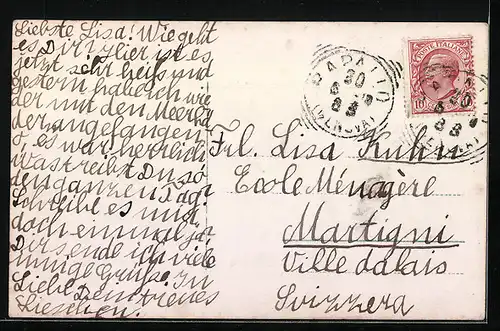 Liebste Lisa! Wie geht
es Dir? Hier ist es
jetzt sehr heiß und
gestern habe ich wie
der mit den Meerba
der angefangen
o, es war herrlich
was treibst Du so
den ganzen Tag?
Schreibe es mir
doch einmal ja.
Dir sende ich viele
innige Grüsse. In
Liebe Dein treues
Lieschen.
POSTE ITALIANE
10
RAPALLO
30
6
(GENOVA)
Frl. Lisa Kuhn
Ecole Ménagère
Martigni
Ville dalais
Svizzera